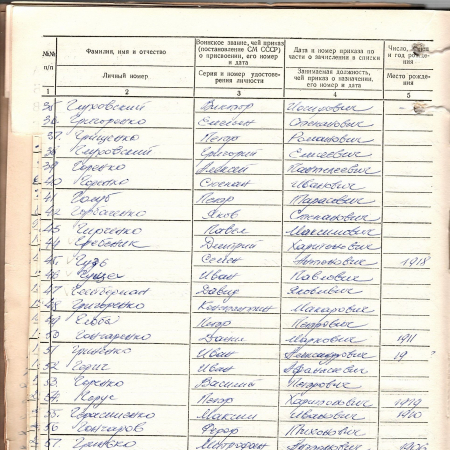 №№ п/п
Фамилия, имя и отчество
Личный номер
Воинское звание, чей приказ (постановление СМ СССР) о присвоении, его номер и дата
Серия и номер удостоверения личности
Дата и номер приказа по части о зачислении в списки
Занимаемая должность, чей приказ о назначении, его номер и дата
Число, и год рождения
Место рождения
1 2 3 4 5
35 Глуховский Виктор Иосипович
36. Григоренко Степанович
37. Грищенко Петр Романович
38 Григорий Елисеевич
39 Алексей Пантелеевич
40 Степан Иванович
41 Голуб Петр Тарасович
42 Горбатенко Яков Степанович
43 Павел Максимович
44 Гребеник Дмитрий Харитонович
45. Гудзь Семен Антонович 1918
46 Гущев Иван Павлович
47 Давид Яковлевич
48 Григоренко Константин Макарович
49 Петр Петрович
50 Гончаренко Данил Маркович 1911
51. Гриненко Иван Александрович 19
52. Горич Иван Афанасьевич
53. Василий Петрович
54. Петр Харитонович 1919
55. Герасименко Максим Иванович 1910
56 Гончаров Федор Тихонович
57 Гриценко Митрофан Антонович 1906